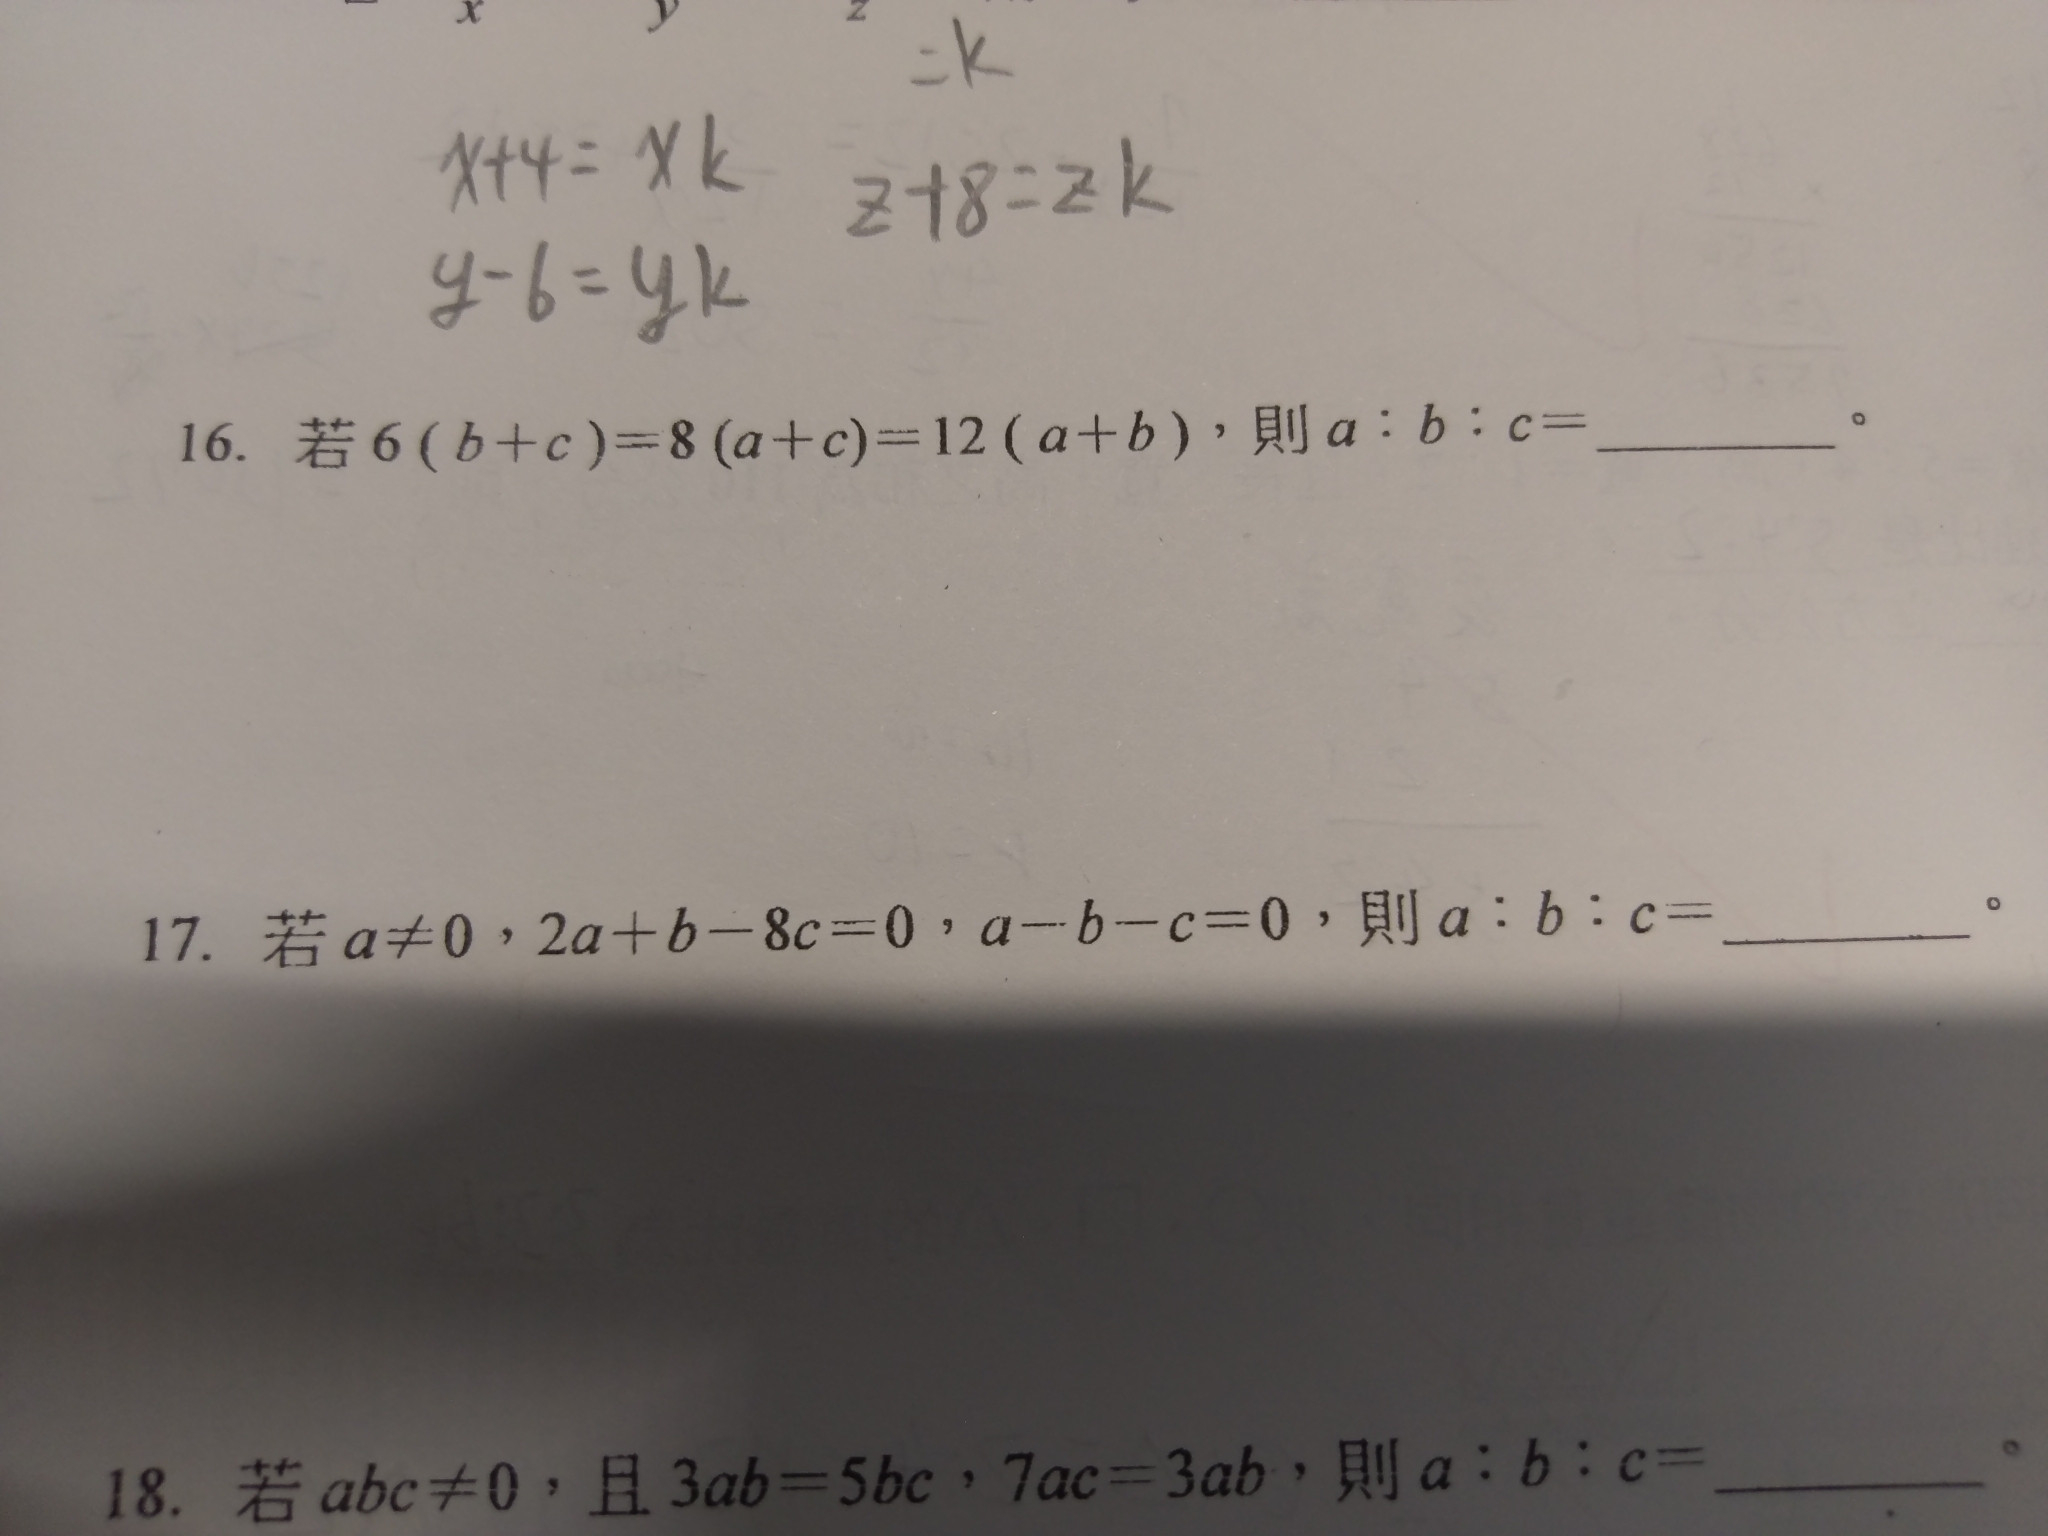 x y z
=k
x+4=xk z+8=zk
y-6=yk
16. 若6(b+c)=8(a+c)=12(a+b),則a:b:c=________。
17. 若a≠0,2a+b-8c=0,a-b-c=0,則a:b:c=________。
18. 若abc≠0,且3ab=5bc,7ac=3ab,則a:b:c=________。